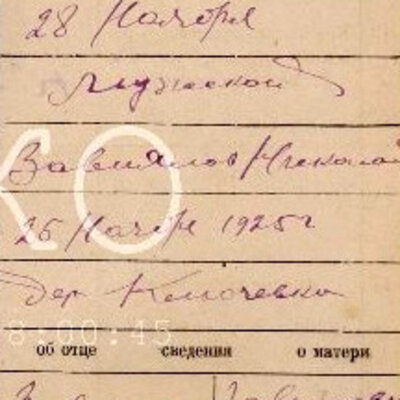 28 Ноября
Мужской
КО
Завьялов Николай
25 Ноябр 1925 г
дер Ключевка
8:00:45
об отце сведения о матери